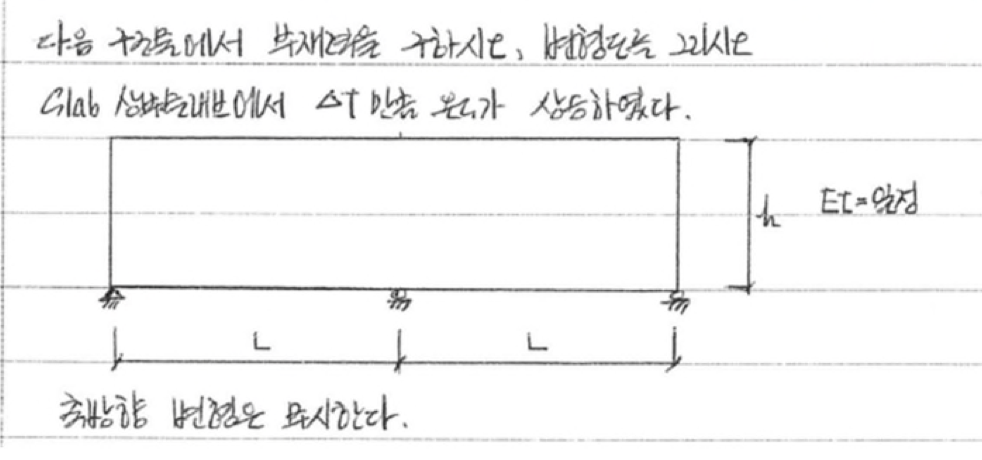 다음 구조물에서 부재력을 구하시오, 변형도를 그리시오
Slab 상부에서 ΔT 만큼 온도가 상승하였다.
h
EI=일정
L
L
축방향 변형은 무시한다.